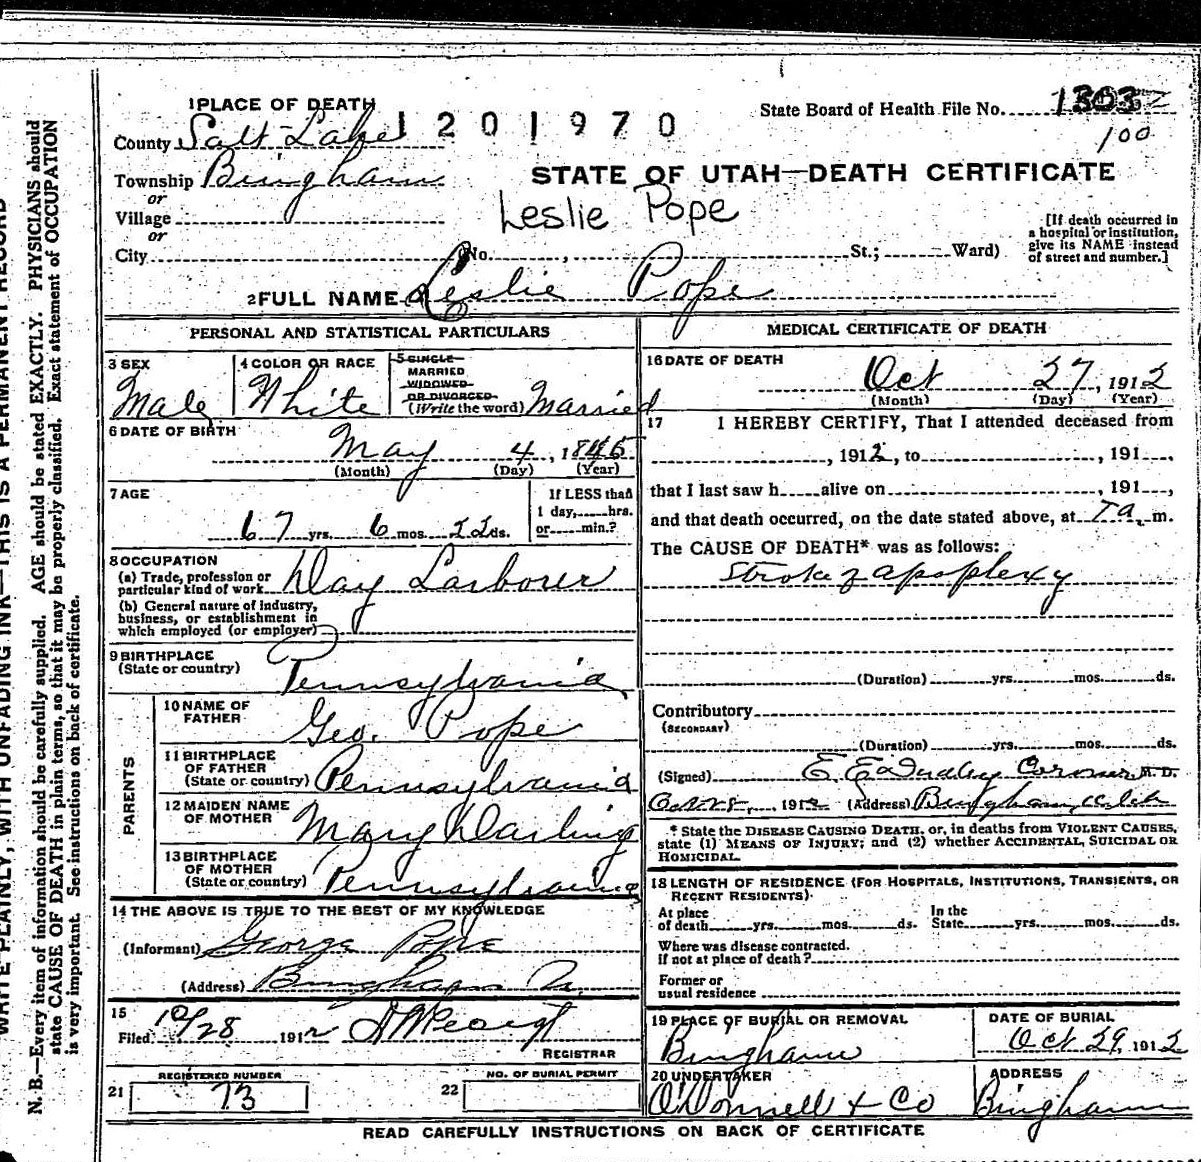 1 PLACE OF DEATH
1201970
State Board of Health File No. 1303
100
County Salt Lake
Township Bingham
STATE OF UTAH—DEATH CERTIFICATE
or
Village
Leslie Pope
or
City No. , St.; Ward)
[If death occurred in
a hospital or institution,
give its NAME instead
of street and number.]
2 FULL NAME Leslie Pope
PERSONAL AND STATISTICAL PARTICULARS
3 SEX
Male
4 COLOR OR RACE
White
5 SINGLE
MARRIED
WIDOWED
OR DIVORCED
(Write the word) Married
6 DATE OF BIRTH
May 4, 1845
(Month) (Day) (Year)
7 AGE
67 yrs. 6 mos. 22 ds.
If LESS than
1 day, hrs.
or min.?
8 OCCUPATION
(a) Trade, profession or
particular kind of work Day Larborer
(b) General nature of industry,
business, or establishment in
which employed (or employer)
9 BIRTHPLACE
(State or country) Pennsylvania
PARENTS
10 NAME OF
FATHER Geo. Pope
11 BIRTHPLACE
OF FATHER
(State or country) Pennsylvania
12 MAIDEN NAME
OF MOTHER Mary Darling
13 BIRTHPLACE
OF MOTHER
(State or country) Pennsylvania
14 THE ABOVE IS TRUE TO THE BEST OF MY KNOWLEDGE
(Informant) George Pope
(Address) Bingham
15
Filed 10/28 1912
REGISTRAR
REGISTERED NUMBER
21 73
NO. OF BURIAL PERMIT
22
MEDICAL CERTIFICATE OF DEATH
16 DATE OF DEATH
Oct 27, 1912
(Month) (Day) (Year)
17 I HEREBY CERTIFY, That I attended deceased from
, 1912, to , 191 ,
that I last saw h alive on , 191 ,
and that death occurred, on the date stated above, at 7 a. m.
The CAUSE OF DEATH* was as follows:
Stroke of apoplexy
(Duration) yrs. mos. ds.
Contributory
(SECONDARY)
(Duration) yrs. mos. ds.
(Signed) E. E. Dudley Coroner M. D.
Oct 28, 1912 (Address) Bingham, Utah
* State the DISEASE CAUSING DEATH, or, in deaths from VIOLENT CAUSES,
state (1) MEANS OF INJURY; and (2) whether ACCIDENTAL, SUICIDAL OR
HOMICIDAL.
18 LENGTH OF RESIDENCE (FOR HOSPITALS, INSTITUTIONS, TRANSIENTS, OR
RECENT RESIDENTS).
At place
of death yrs. mos. ds.
In the
State yrs. mos. ds.
Where was disease contracted.
if not at place of death?
Former or
usual residence
19 PLACE OF BURIAL OR REMOVAL
Bingham
DATE OF BURIAL
Oct 29, 1912
20 UNDERTAKER
O'Donnell & Co
ADDRESS
Bingham
READ CAREFULLY INSTRUCTIONS ON BACK OF CERTIFICATE
WRITE PLAINLY, WITH UNFADING INK—THIS IS A PERMANENT RECORD
N. B.—Every item of information should be carefully supplied. AGE should be stated EXACTLY. PHYSICIANS should
state CAUSE OF DEATH in plain terms, so that it may be properly classified. Exact statement of OCCUPATION
is very important. See instructions on back of certificate.